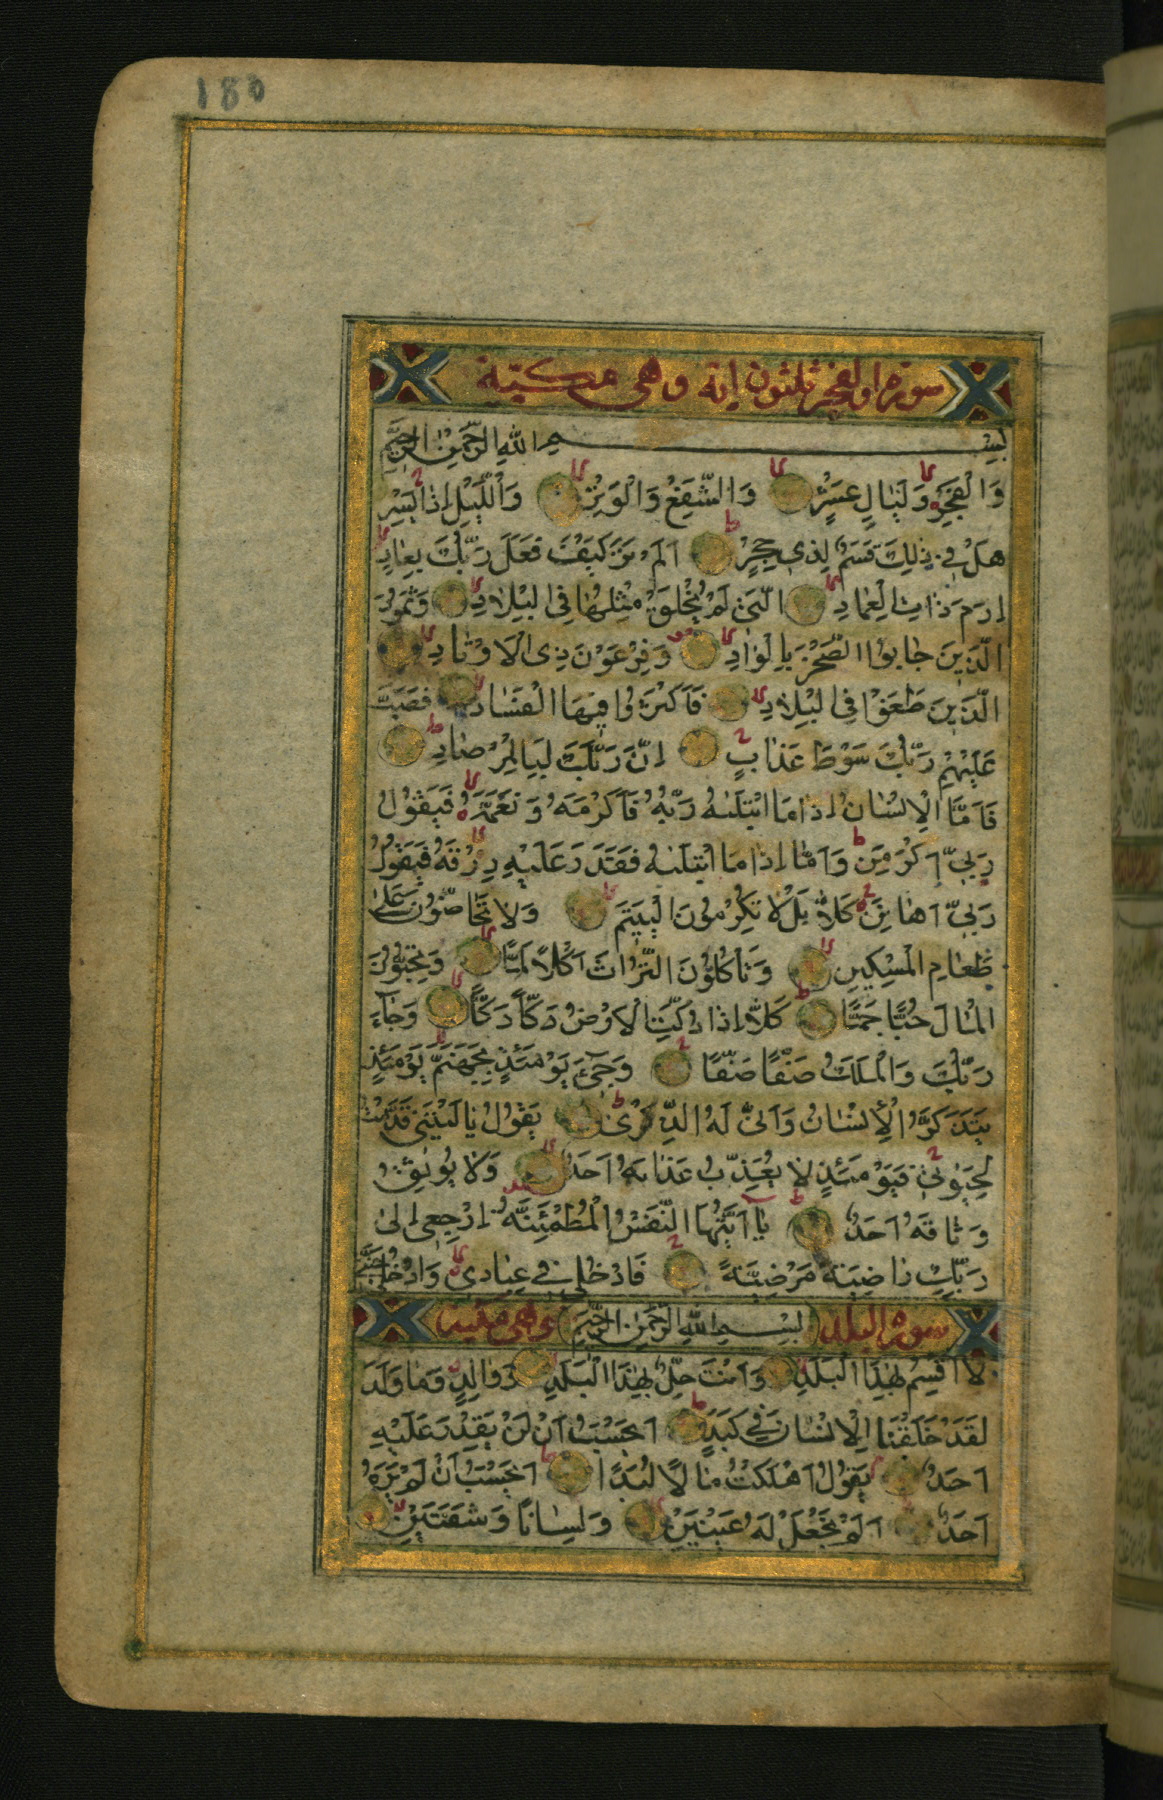 180
سورة والفجر ثلثون اية وهي مكية
بسم الله الرحمن الرحيم
وَالْفَجْرِ وَلَيَالٍ عَشْرٍ وَالشَّفْعِ وَالْوَتْرِ وَاللَّيْلِ اِذَا يَسْرِ
هَلْ فِي ذٰلِكَ قَسَمٌ لِذِي حِجْرٍ اَلَمْ تَرَ كَيْفَ فَعَلَ رَبُّكَ بِعَادٍ
اِرَمَ ذَاتِ الْعِمَادِ الَّتِي لَمْ يُخْلَقْ مِثْلُهَا فِي الْبِلَادِ وَثَمُودَ
الَّذِينَ جَابُوا الصَّخْرَ بِالْوَادِ وَفِرْعَوْنَ ذِي الْاَوْتَادِ
الَّذِينَ طَغَوْا فِي الْبِلَادِ فَاَكْثَرُوا فِيهَا الْفَسَادَ فَصَبَّ
عَلَيْهِمْ رَبُّكَ سَوْطَ عَذَابٍ اِنَّ رَبَّكَ لَبِالْمِرْصَادِ
فَاَمَّا الْاِنْسَانُ اِذَا مَا ابْتَلٰىهُ رَبُّهُ فَاَكْرَمَهُ وَنَعَّمَهُ فَيَقُولُ
رَبِّي اَكْرَمَنِ وَاَمَّا اِذَا مَا ابْتَلٰىهُ فَقَدَرَ عَلَيْهِ رِزْقَهُ فَيَقُولُ
رَبِّي اَهَانَنِ كَلَّا بَلْ لَا تُكْرِمُونَ الْيَتِيمَ وَلَا تَحَاضُّونَ عَلٰى
طَعَامِ الْمِسْكِينِ وَتَأْكُلُونَ التُّرَاثَ اَكْلًا لَمًّا وَتُحِبُّونَ
الْمَالَ حُبًّا جَمًّا كَلَّا اِذَا دُكَّتِ الْاَرْضُ دَكًّا دَكًّا وَجَاءَ
رَبُّكَ وَالْمَلَكُ صَفًّا صَفًّا وَجِيءَ يَوْمَئِذٍ بِجَهَنَّمَ يَوْمَئِذٍ
يَتَذَكَّرُ الْاِنْسَانُ وَاَنّٰى لَهُ الذِّكْرٰى يَقُولُ يَا لَيْتَنِي قَدَّمْتُ
لِحَيٰوتِي فَيَوْمَئِذٍ لَا يُعَذِّبُ عَذَابَهُ اَحَدٌ وَلَا يُوثِقُ
وَثَاقَهُ اَحَدٌ يَا اَيَّتُهَا النَّفْسُ الْمُطْمَئِنَّةُ اِرْجِعِي اِلٰى
رَبِّكِ رَاضِيَةً مَرْضِيَّةً فَادْخُلِي فِي عِبَادِي وَادْخُلِي جَنَّتِي
سورة البلد بسم الله الرحمن الرحيم وهي مكية
لَا اُقْسِمُ بِهٰذَا الْبَلَدِ وَاَنْتَ حِلٌّ بِهٰذَا الْبَلَدِ وَوَالِدٍ وَمَا وَلَدَ
لَقَدْ خَلَقْنَا الْاِنْسَانَ فِي كَبَدٍ اَيَحْسَبُ اَنْ لَنْ يَقْدِرَ عَلَيْهِ
اَحَدٌ يَقُولُ اَهْلَكْتُ مَالًا لُبَدًا اَيَحْسَبُ اَنْ لَمْ يَرَهُ
اَحَدٌ اَلَمْ نَجْعَلْ لَهُ عَيْنَيْنِ وَلِسَانًا وَشَفَتَيْنِ